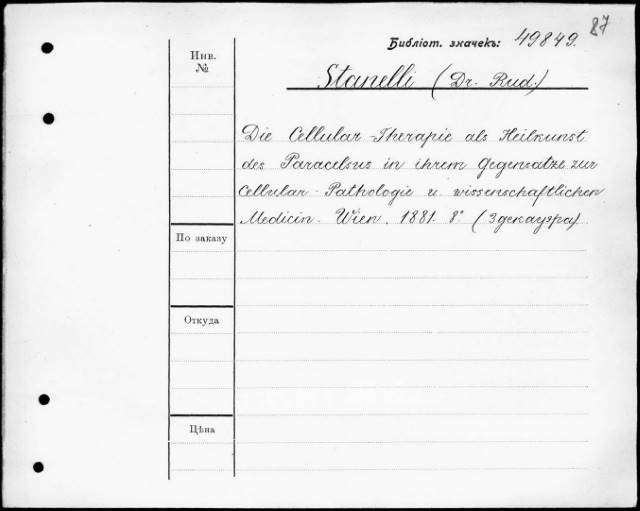 87
Библіот. значекъ: 49849.
Инв.
№
Stanelli (Dr. Rud.)
Die Cellular-Therapie als Heilkunst
des Paracelsus in ihrem Gegensatze zur
Cellular-Pathologie u. wissenschaftlichen
Medicin. Wien. 1881. 8° (3 декауэра)
По заказу
Откуда
Цѣна